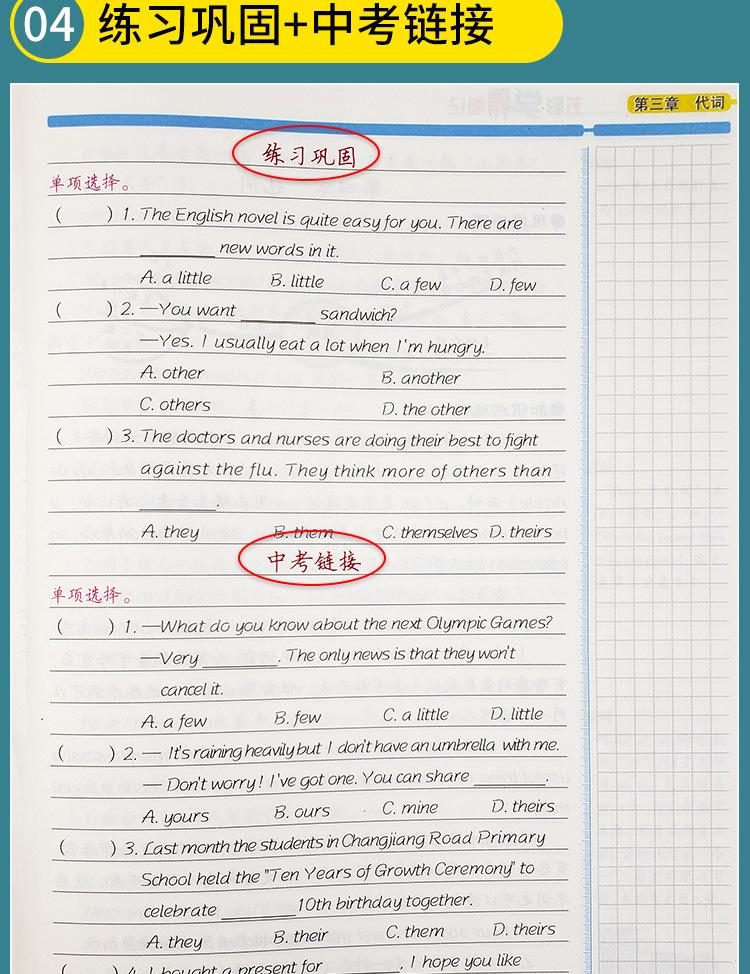 04 练习巩固+中考链接
第三章 代词
练习巩固
单项选择。
( ) 1. The English novel is quite easy for you. There are
________ new words in it.
A. a little B. little C. a few D. few
( ) 2. —You want ________ sandwich?
—Yes. I usually eat a lot when I'm hungry.
A. other B. another
C. others D. the other
( ) 3. The doctors and nurses are doing their best to fight
against the flu. They think more of others than
________.
A. they B. them C. themselves D. theirs
中考链接
单项选择。
( ) 1. —What do you know about the next Olympic Games?
—Very ________. The only news is that they won't
cancel it.
A. a few B. few C. a little D. little
( ) 2. — It's raining heavily but I don't have an umbrella with me.
— Don't worry! I've got one. You can share ________.
A. yours B. ours C. mine D. theirs
( ) 3. Last month the students in Changjiang Road Primary
School held the "Ten Years of Growth Ceremony" to
celebrate ________ 10th birthday together.
A. they B. their C. them D. theirs
( ) 4. I bought a present for ________. I hope you like